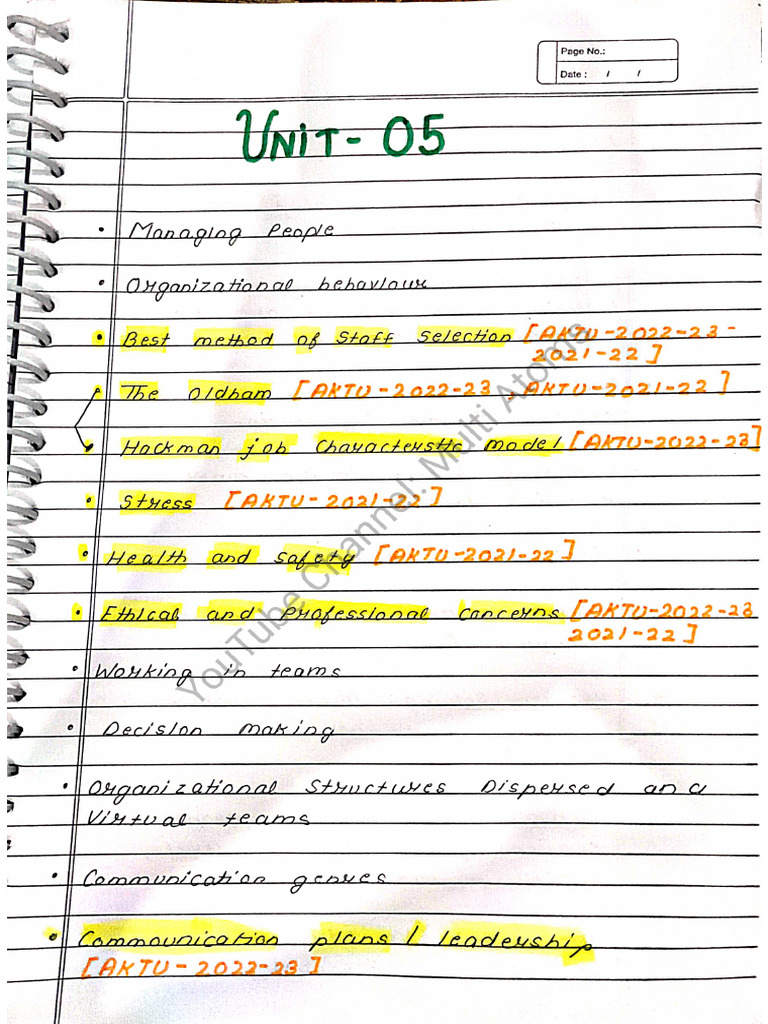 Page No.:
Date : / /
UNIT - 05
• Managing People
• Organizational behaviour
• Best method of Staff Selection [AKTU-2022-23-
2021-22]
• The Oldham [AKTU-2022-23, AKTU-2021-22]
• Hackman job Characterstic model [AKTU-2022-23]
• Stress [AKTU-2021-22]
• Health and Safety [AKTU-2021-22]
• Ethical and Professional Concerns [AKTU-2022-23
2021-22]
• Working in teams
• Decision making
• Organizational Structures Dispersed and
Virtual teams
• Communication genres
• Communication plans / leadership
[AKTU-2022-23]
YouTube Channel: Multi Atoms